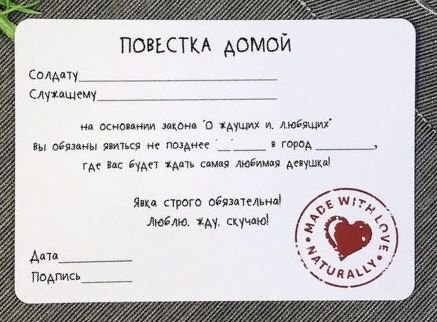 ПОВЕСТКА ДОМОЙ
Солдату____________________
Служащему____________________
на основании закона "О ждущих и. любящих"
вы обязаны явиться не позднее "__ ______ в город __________,
где вас будет ждать самая любимая девушка!
Явка строго обязательна!
Люблю, жду, скучаю!
MADE WITH LOVE
NATURALLY
Дата__________
Подпись__________